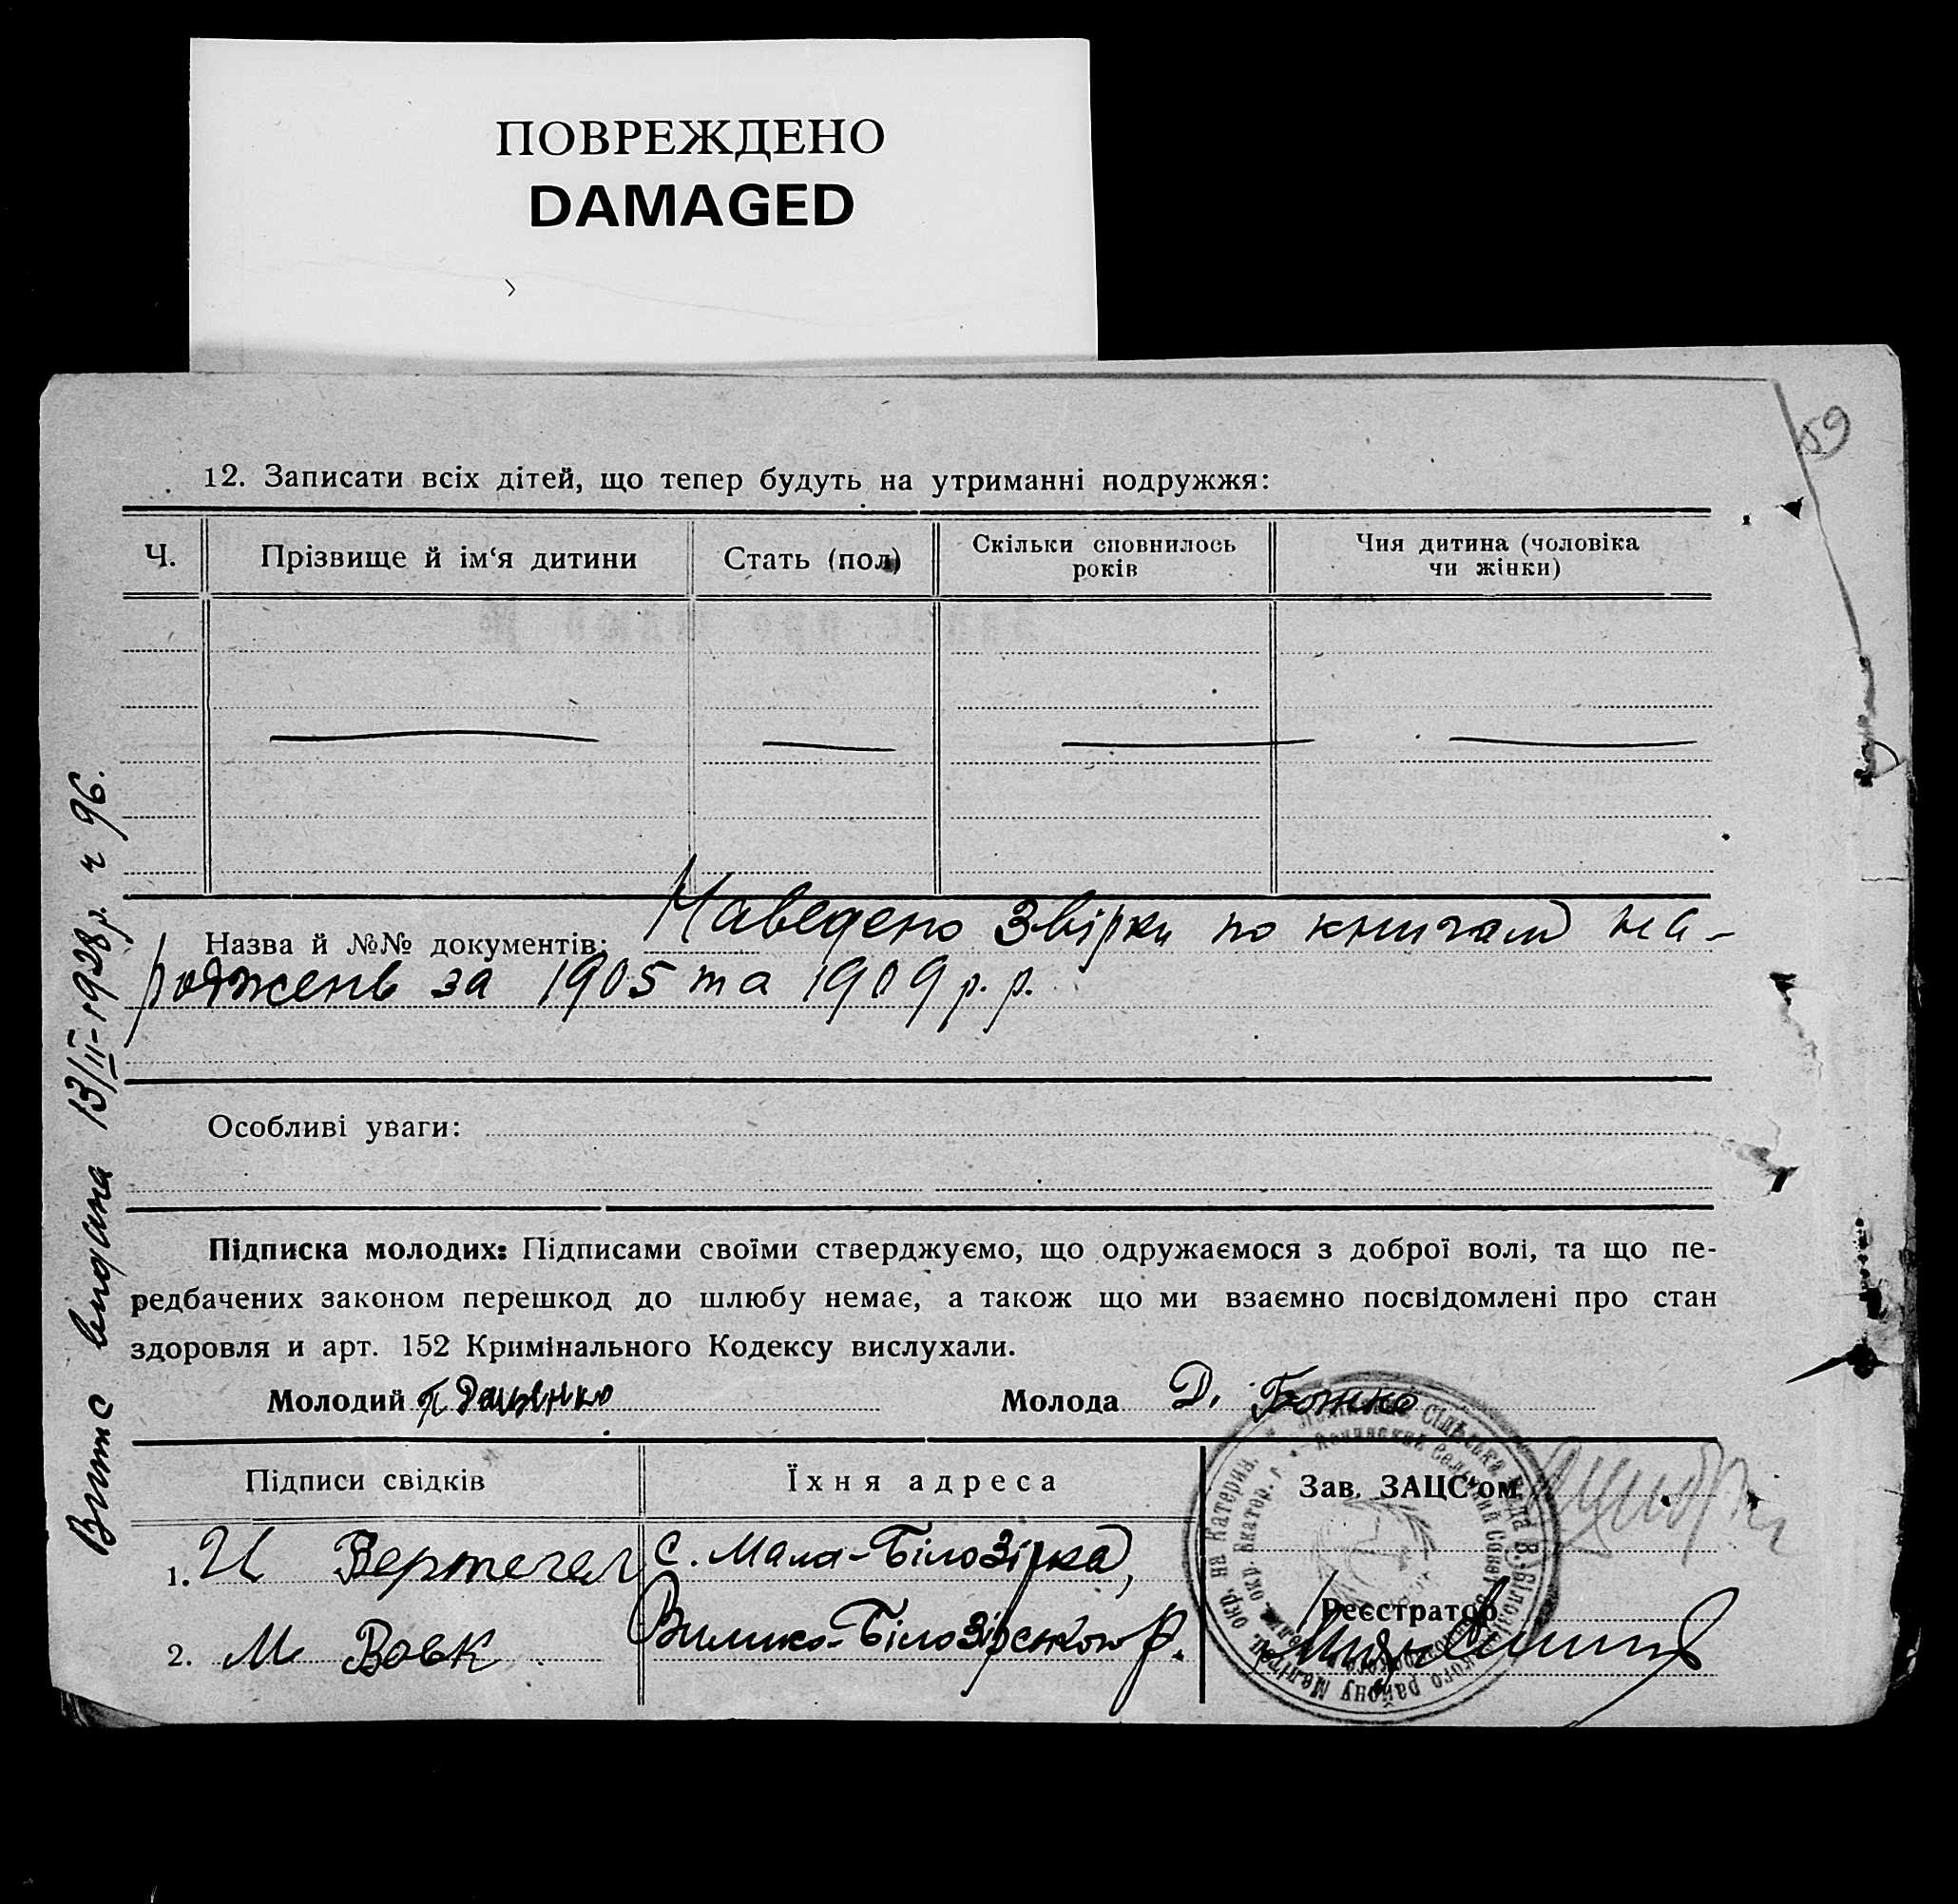 ПОВРЕЖДЕНО
DAMAGED
59
12. Записати всіх дітей, що тепер будуть на утриманні подружжя:
Ч. Прізвище й ім‘я дитини Стать (пол) Скільки сповнилось років Чия дитина (чоловіка чи жінки)
Назва й №№ документів: Наведено Звірки по книгам на-
роджень за 1905 та 1909 р. р.
Особливі уваги:
Підписка молодих: Підписами своїми стверджуємо, що одружаємося з доброї волі, та що пе-
редбачених законом перешкод до шлюбу немає, а також що ми взаємно посвідомлені про стан
здоровля и арт. 152 Кримінального Кодексу вислухали.
Молодий Молода Д. Божко
Підписи свідків Їхня адреса Зав. ЗАЦС‘ом
1. И Вертегел с. Мала-Білозірка,
Реєстратор
2. М Вовк Велико-Білозірського р.
Витс видана 13/II-1928 р. ч 96.